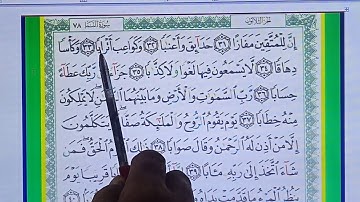 سُورَةُ النَّبَإِ ٧٨
الجزء الثلاثون
إِنَّ لِلْمُتَّقِينَ مَفَازًا ٣١ حَدَآئِقَ وَأَعْنَٰبًا ٣٢ وَكَوَاعِبَ أَتْرَابًا ٣٣ وَكَأْسًا
دِهَاقًا ٣٤ لَّا يَسْمَعُونَ فِيهَا لَغْوًا وَلَا كِذَّٰبًا ٣٥ جَزَآءً مِّن رَّبِّكَ عَطَآءً
حِسَابًا ٣٦ رَّبِّ ٱلسَّمَٰوَٰتِ وَٱلْأَرْضِ وَمَا بَيْنَهُمَا ٱلرَّحْمَٰنِ لَا يَمْلِكُونَ
مِنْهُ خِطَابًا ٣٧ يَوْمَ يَقُومُ ٱلرُّوحُ وَٱلْمَلَٰٓئِكَةُ صَفًّا لَّا يَتَكَلَّمُونَ
إِلَّا مَنْ أَذِنَ لَهُ ٱلرَّحْمَٰنُ وَقَالَ صَوَابًا ٣٨ ذَٰلِكَ ٱلْيَوْمُ ٱلْحَقُّ فَمَن
شَآءَ ٱتَّخَذَ إِلَىٰ رَبِّهِۦ مَـَٔابًا ٣٩ عَذَابًا قَرِيبًا يَوْمَ
يَنظُرُ ٱلْمَرْءُ مَا قَدَّمَتْ يَدَاهُ